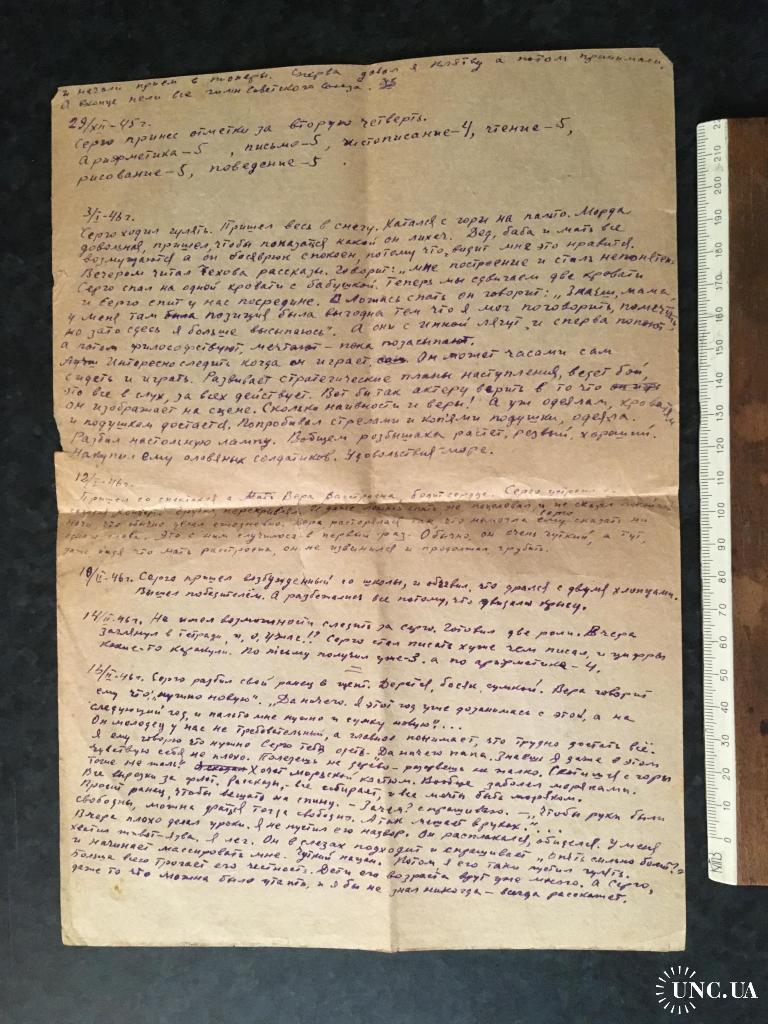 и начали прием в пионеры. Сперва давал я клятву а потом принимали.
А вконце пели все гимн Советского союза.
29/XII-45г.
Серго принес отметки за вторую четверть.
Арифметика-5, письмо-5, чистописание-4, чтение-5,
рисование-5, поведение-5.
3/I-46г.
Серго ходил гулять. Пришел весь в снегу. Катался с горы на пальто. Морда
довольная, пришел, чтобы показатся какой он лихач. Дед, баба и мать все
возмущаются а он боевярюк спокоен, потому что, видит мне это нравится.
Вечером читал Чехова рассказы. Говорит: „мне построение и стиль непонятен.
Серго спал на одной кровати с бабушкой. Теперь мы сдвигаем две кровати
и Серго спит у нас посредине. Ложась спать он говорит: „Знаеш, мама,
у меня там позиция была выгодна тем что я мог поговорить, помечтать,
но зато сдесь я больше высыпаюсь". А они с Инной лягут, и сперва
а потом философствуют, мечтают - пока позасыпают.
Интересно следить когда он играет. Он может часами сам
сидеть и играть. Развивает стратегические планы наступления, ведет бой,
это все в слух, за всех действует. Вот бы так актеру верить в то что
он изображает на сцене. Сколько наивности и веры! А уж одеялам, кроватям
и подушкам достается. Попробивал стрелами и копями подушки, одеяла.
Разбил настольную лампу. Вобщем розбышака растет. Резвый, хороший.
Накупил ему оловяных солдатиков. Удовольствия-море.
12/I-46г.
Пришел со спектакля а Мать Вера расстроена, болит сердце. Серго устроил
Вера расстроилась так что не могла ему сказать ни
одного слова. Это с ним случилось в первый раз. Обычно, он очень чуткий, а тут,
даже видя что мать расстроена, он не извинился и продолжал грубить.
10/II-46г. Серго пришел возбужденный со школы, и объявил, что дрался с двумя хлопцами.
Вышел победителем. А разбежались все потому, что увидали крысу.
14/II-46г. На имел возможности следить за Серго. Готовил две роли. Вчера
заглянул в тетради, и, о, ужас!! Серго стал писать хуже чем писал, и цифры
какие-то каракули. По письму получил уже-3. а по арифметике-4.
15/II-46г. Серго разбил свой ранец в щент. Дерется, босяк, сумкой. Вера говорит
ему что „нужно новую". „Да ничего. Я этот год уже дозанимаюсь с этой, а на
следующий год, и пальто мне нужно и сумку новую"...
Он молодец у нас не требовательный, а главное понимает, что трудно достать всё.
Я ему говорю что нужно Серго тебя одеть. Да ничего папа. Знаеш я даже в этом
чувствую себя не плохо. Полезешь на дерево - разорвешь не жалко. Скатишся с горы
тоже не жаль. Хочет морской костюм. Вообще заболел моряками.
Все вырезки за флот. Рассказы, все собирает, и все мечты быть моряком.
Просит ранец, чтобы вещать на спину. - Зачем? спрашиваю. -, Чтобы руки были
свободны, можна драться тогда свободно. А так мешает в руках"...
Вчера плохо делал уроки. Я не пустил его надвор. Он расплакался, обиделся. У меня
хватил живот-язва. Я лег. Он в слезах подходит и спрашивает „Опять сильно болит?"
и начинает массировать мне. Чуткий пацан. Потом я его таки пустил гулять.
Больше всего трогает его честность. Дети его возраста врут уже много. А Серго,
даже то что можна было утаить, и я бы не знал никогда - всегда расскажет.
UNC.UA